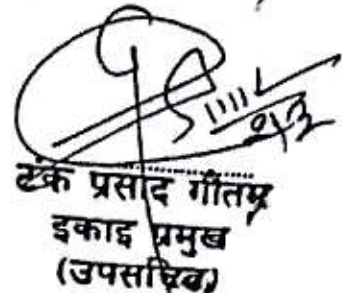 टंक प्रसाद गौतम
इकाइ प्रमुख
(उपसचिव)